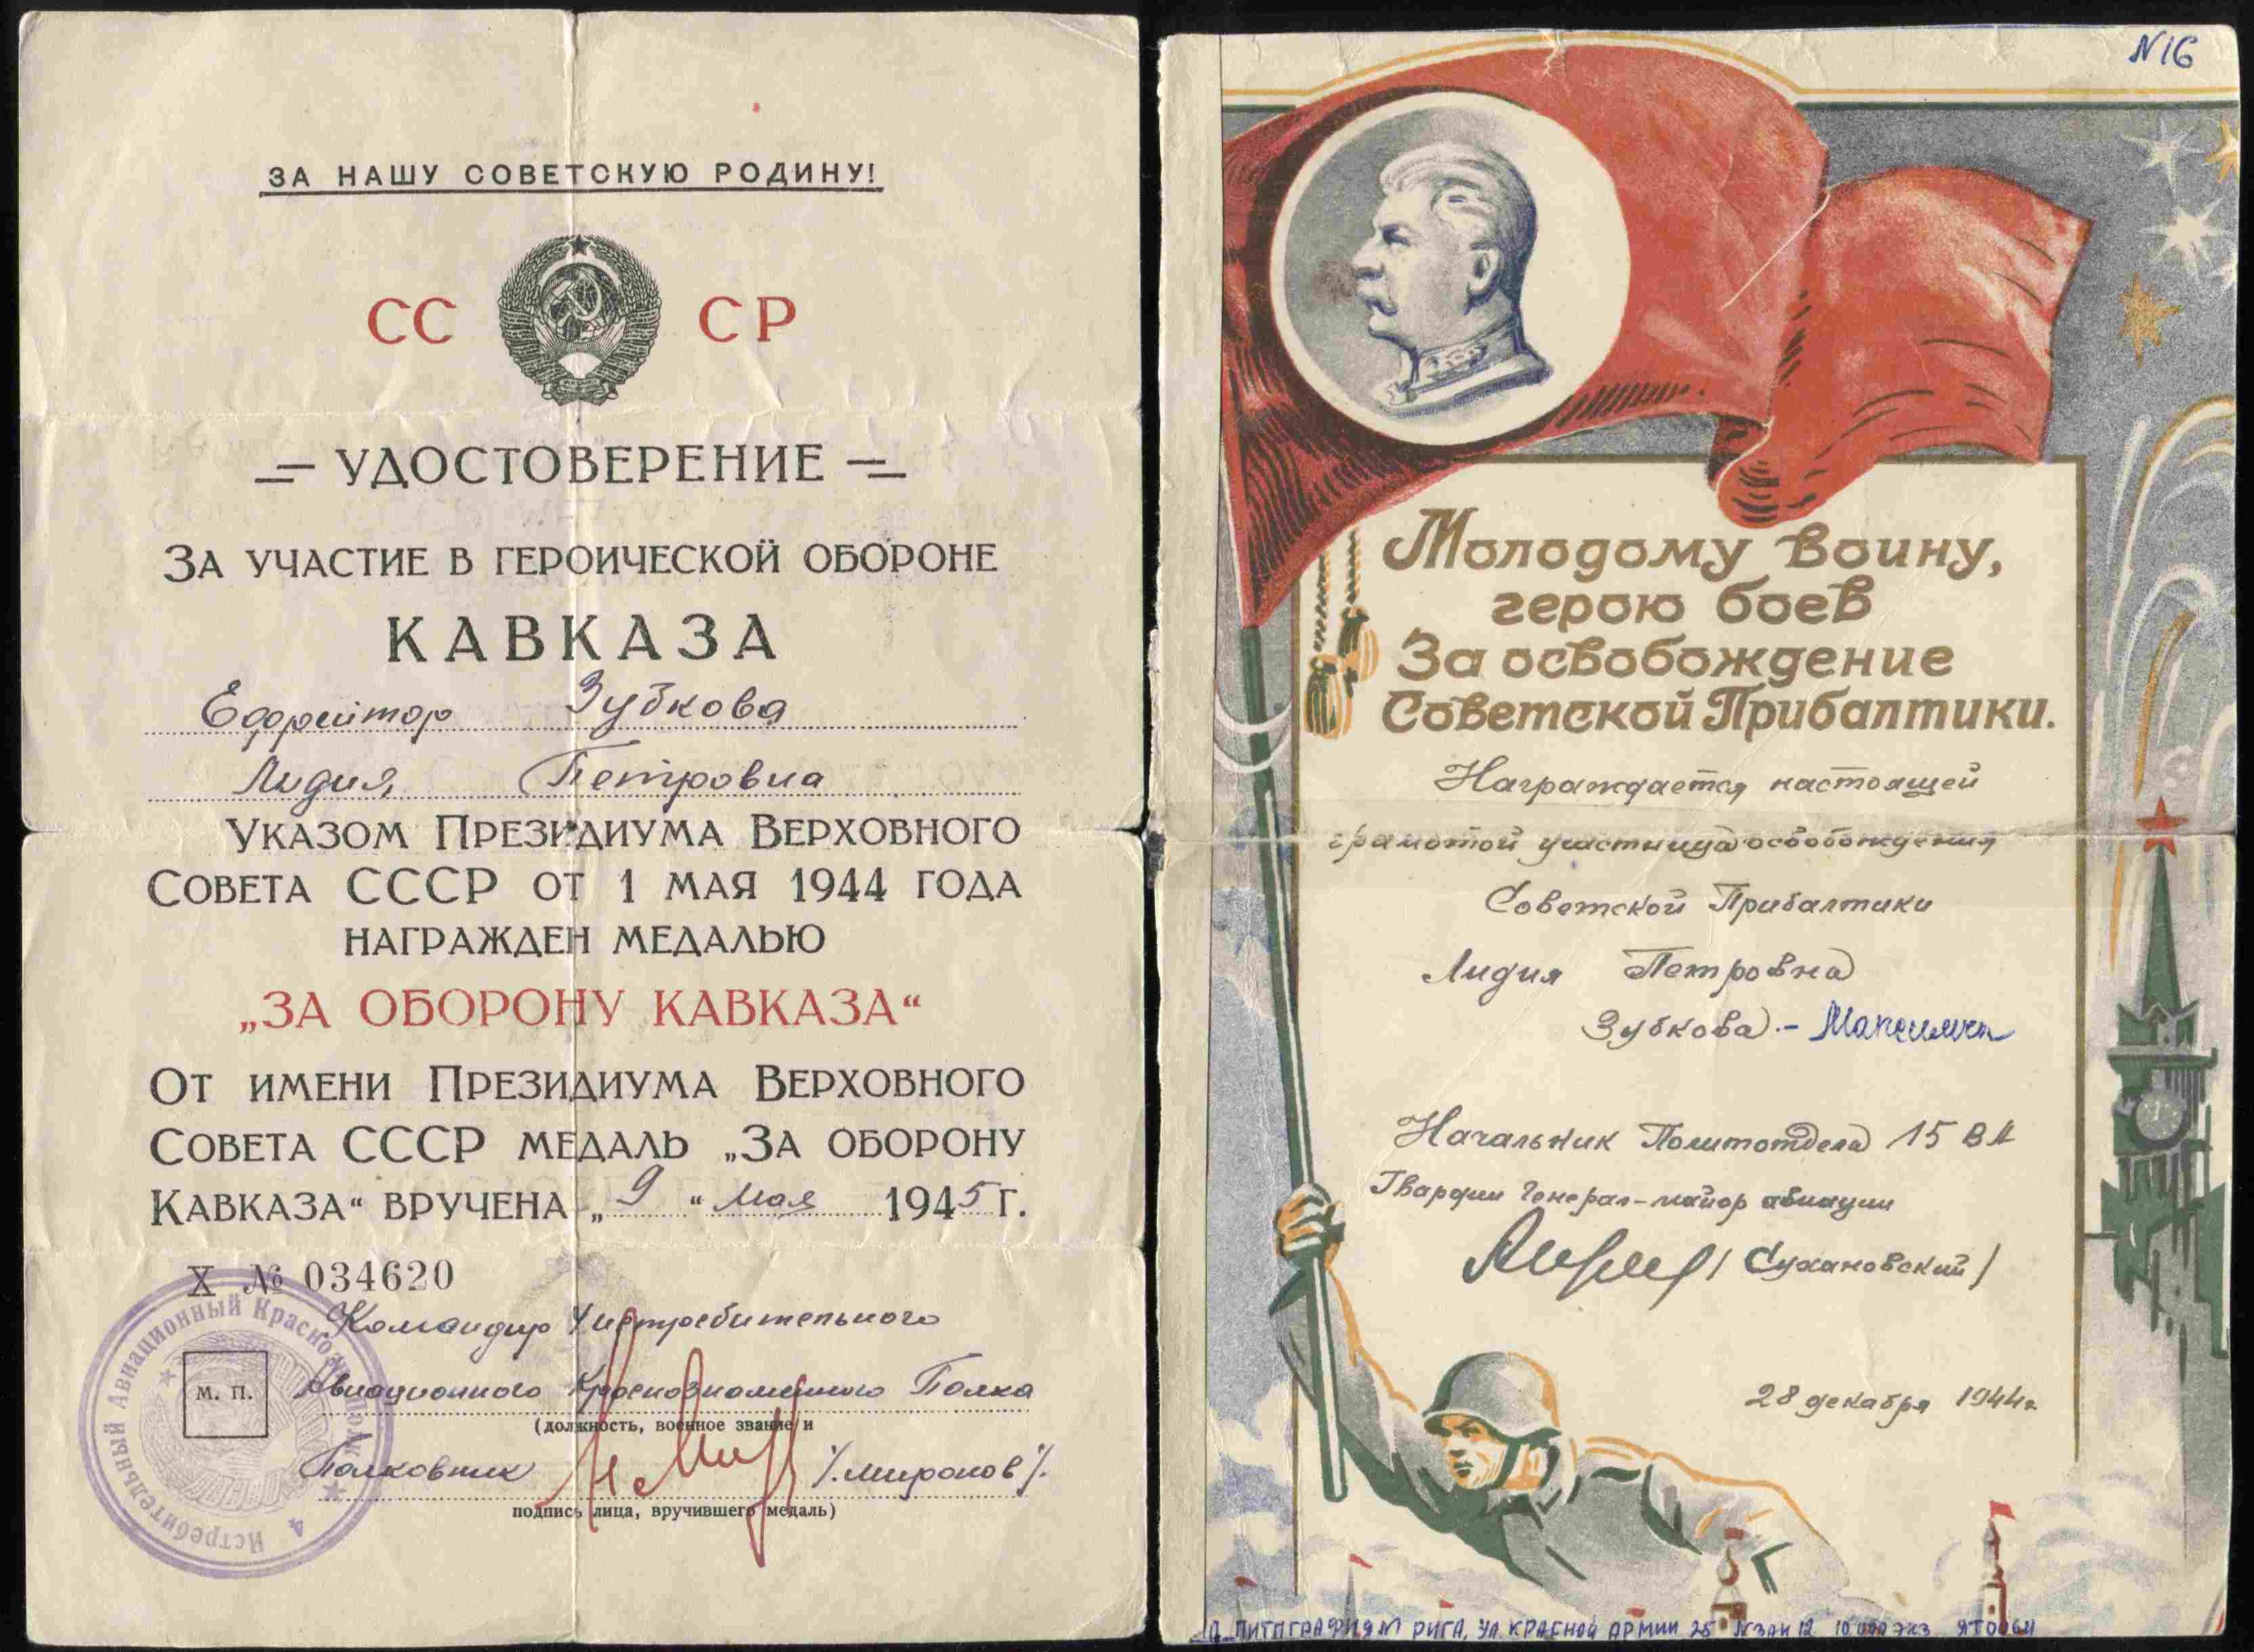 ЗА НАШУ СОВЕТСКУЮ РОДИНУ!
СС СР
УДОСТОВЕРЕНИЕ
ЗА УЧАСТИЕ В ГЕРОИЧЕСКОЙ ОБОРОНЕ
КАВКАЗА
Ефрейтор Зубкова
Лидия Петровна
УКАЗОМ ПРЕЗИДИУМА ВЕРХОВНОГО
СОВЕТА СССР ОТ 1 МАЯ 1944 ГОДА
НАГРАЖДЕН МЕДАЛЬЮ
„ЗА ОБОРОНУ КАВКАЗА“
ОТ ИМЕНИ ПРЕЗИДИУМА ВЕРХОВНОГО
СОВЕТА СССР МЕДАЛЬ „ЗА ОБОРОНУ
КАВКАЗА“ ВРУЧЕНА „9“ мая 1945 Г.
X № 034620
Командир Истребительного
Авиационного Краснознаменного Полка
(должность, военное звание и
Полковник /.Миронов/.
подпись лица, вручившего медаль)
М. П.
4 Истребительный Авиационный Краснознам. Полк
N16
Молодому воину,
герою боев
За освобождение
Советской Прибалтики.
Награждается настоящей
грамотой участница освобождения
Советской Прибалтики
Лидия Петровна
Зубкова -
Начальник Политотдела 15 ВА
Гвардии Генерал-майор авиации
/Сухановский/
28 декабря 1944г
ЛИТОГРАФИЯ РИГА, УЛ. КРАСНОЙ АРМИИ 25 ЗАК 12 10000 ЭКЗ ЯТ0064